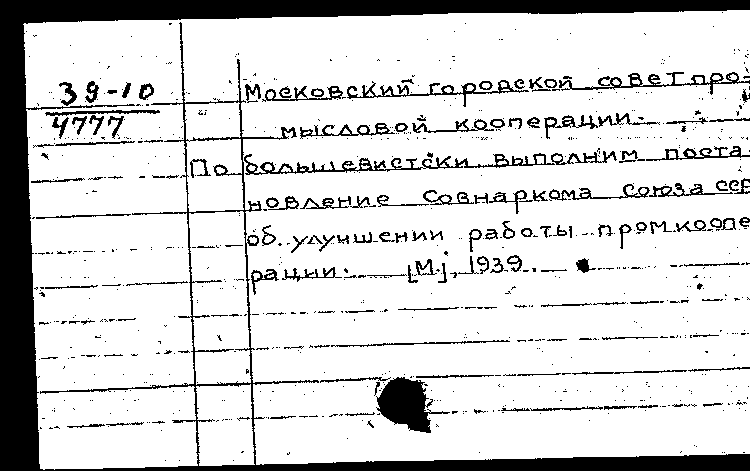 39-10
4777
Московский городской совет про-
мысловой кооперации.
По большевистски выполним поста-
новление Совнаркома Союза ССР
об улучшении работы промкоопе
рации. [М.], 1939.